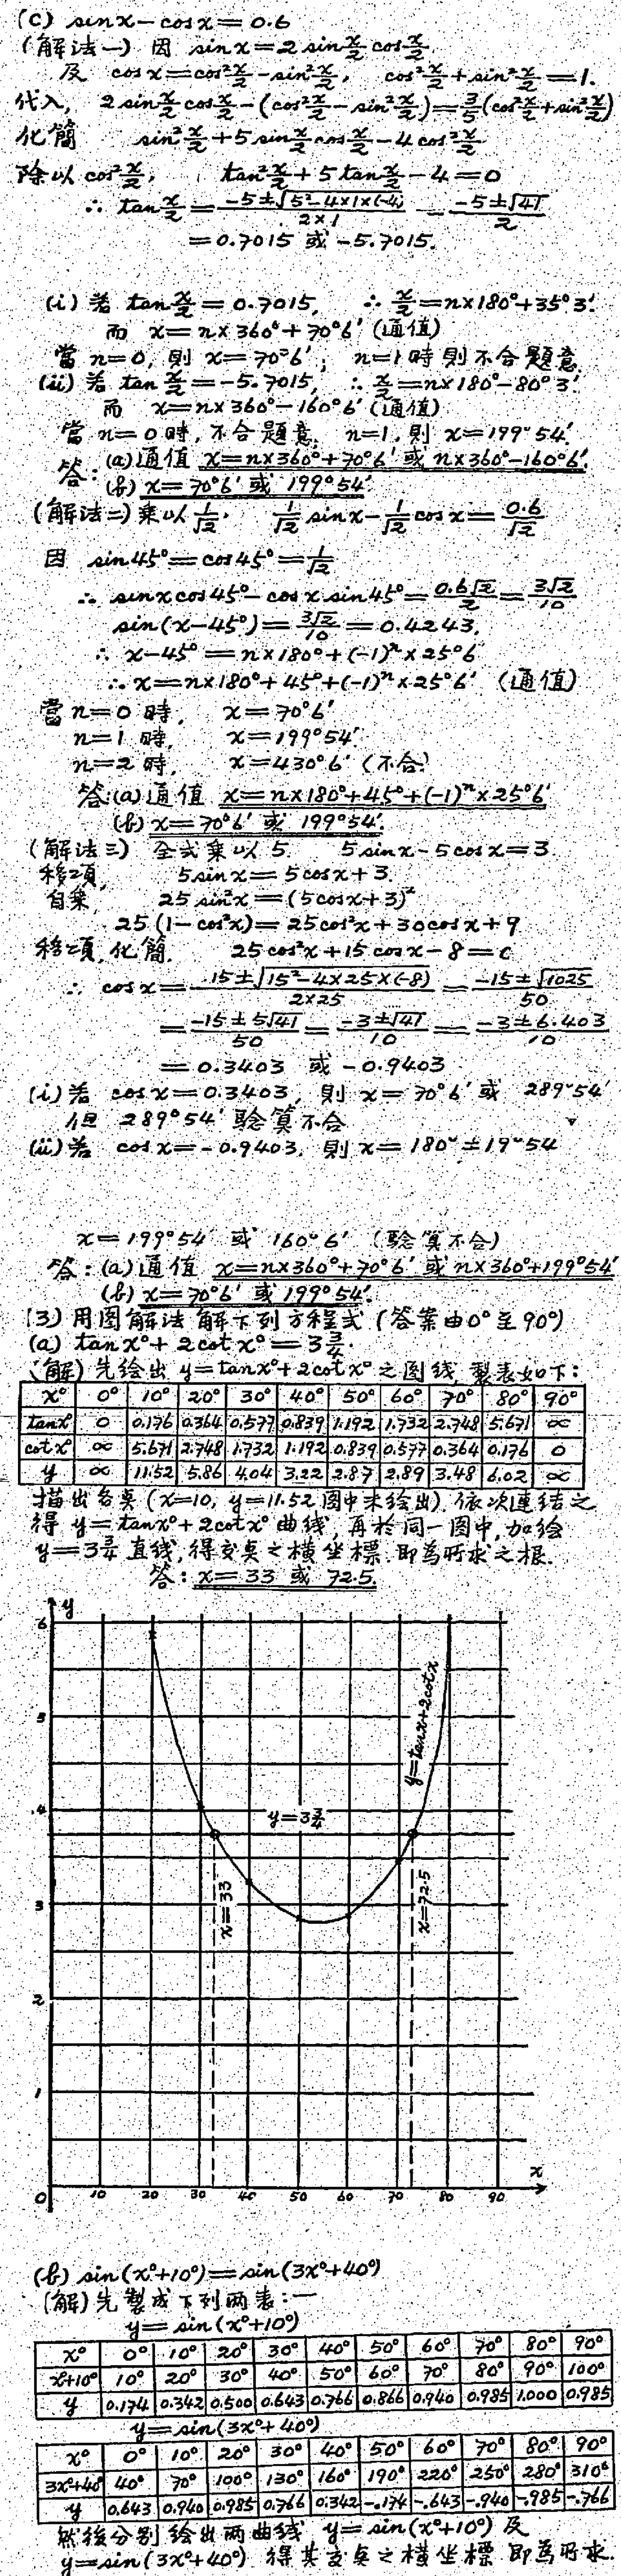 (C) sinx－cosx＝0.6
(解法一) 因 sinx＝2 sin x/2 cos x/2
及 cosx＝cos² x/2－sin² x/2, cos² x/2＋sin² x/2＝1.
代入, 2 sin x/2 cos x/2－(cos² x/2－sin² x/2)＝3/5(cos² x/2＋sin² x/2)
化簡 sin² x/2＋5 sin x/2 cos x/2－4 cos² x/2
除以 cos² x/2, tan² x/2＋5 tan x/2－4＝0
∴ tan x/2＝(-5±√(5²-4×1×(-4)))/(2×1)＝(-5±√41)/2
＝0.7015 或 -5.7015.
(i) 若 tan x/2＝0.7015, ∴ x/2＝n×180°＋35°3′
而 x＝n×360°＋70°6′ (通值)
當 n＝0, 則 x＝70°6′; n＝1 時則不合題意
(ii) 若 tan x/2＝-5.7015, ∴ x/2＝n×180°－80°3′
而 x＝n×360°－160°6′ (通值)
當 n＝0 時, 不合題意, n＝1, 則 x＝199°54′.
答: (a) 通值 x＝n×360°＋70°6′ 或 n×360°－160°6′.
(b) x＝70°6′ 或 199°54′
(解法二) 乘以 1/√2, 1/√2 sinx－1/√2 cosx＝0.6/√2
因 sin45°＝cos45°＝1/√2
∴ sinx cos45°－cosx sin45°＝0.6√2/2＝3√2/10
sin(x－45°)＝3√2/10＝0.4243.
∴ x－45°＝n×180°＋(-1)ⁿ×25°6′
∴ x＝n×180°＋45°＋(-1)ⁿ×25°6′ (通值)
當 n＝0 時, x＝70°6′
n＝1 時, x＝199°54′
n＝2 時, x＝430°6′ (不合)
答: (a) 通值 x＝n×180°＋45°＋(-1)ⁿ×25°6′
(b) x＝70°6′ 或 199°54′.
(解法三) 全式乘以 5. 5 sinx－5 cosx＝3
移項, 5 sinx＝5 cosx＋3.
自乘, 25 sin²x＝(5cosx＋3)²
25(1－cos²x)＝25cos²x＋30cosx＋9
移項, 化簡. 25 cos²x＋15 cosx－8＝0
∴ cosx＝(-15±√(15²-4×25×(-8)))/(2×25)＝(-15±√1025)/50
＝(-15±5√41)/50＝(-3±√41)/10＝(-3±6.403)/10
＝0.3403 或 -0.9403
(i) 若 cosx＝0.3403, 則 x＝70°6′ 或 289°54′
但 289°54′ 驗算不合
(ii) 若 cosx＝-0.9403, 則 x＝180°±19°54′
x＝199°54′ 或 160°6′ (驗算不合)
答: (a) 通值 x＝n×360°＋70°6′ 或 n×360°＋199°54′
(b) x＝70°6′ 或 199°54′.
(3) 用圖解法解下列方程式 (答案由0°至90°)
(a) tanx°＋2cotx°＝3¾.
(解) 先绘出 y＝tanx°＋2cotx° 之圖线, 製表如下:
x° 0° 10° 20° 30° 40° 50° 60° 70° 80° 90°
tanx° 0 0.176 0.364 0.577 0.839 1.192 1.732 2.748 5.671 ∞
cotx° ∞ 5.671 2.748 1.732 1.192 0.839 0.577 0.364 0.176 0
y ∞ 11.52 5.86 4.04 3.22 2.87 2.89 3.48 6.02 ∞
描出各臭 (x＝10, y＝11.52 图中未绘出). 依次連结之
得 y＝tanx°＋2cotx° 曲线, 再於同一图中, 加绘
y＝3¾ 直线, 得交臭之橫坐標. 即為所求之根.
答: x＝33 或 72.5.
y
6
5
4
3
2
1
0 10 20 30 40 50 60 70 80 90
x
y＝tanx＋2cotx
y＝3¾
x＝33
x＝72.5
(b) sin(x°＋10°)＝sin(3x°＋40°)
(解) 先製成下列兩表:一
y＝sin(x°＋10°)
x° 0° 10° 20° 30° 40° 50° 60° 70° 80° 90°
x°+10° 10° 20° 30° 40° 50° 60° 70° 80° 90° 100°
y 0.174 0.342 0.500 0.643 0.766 0.866 0.940 0.985 1.000 0.985
y＝sin(3x°＋40°)
x° 0° 10° 20° 30° 40° 50° 60° 70° 80° 90°
3x°+40° 40° 70° 100° 130° 160° 190° 220° 250° 280° 310°
y 0.643 0.940 0.985 0.766 0.342 -.174 -.643 -.940 -.985 -.766
然後分别绘出兩曲线 y＝sin(x°＋10°) 及
y＝sin(3x°＋40°) 得其交臭之橫坐標 即為所求.